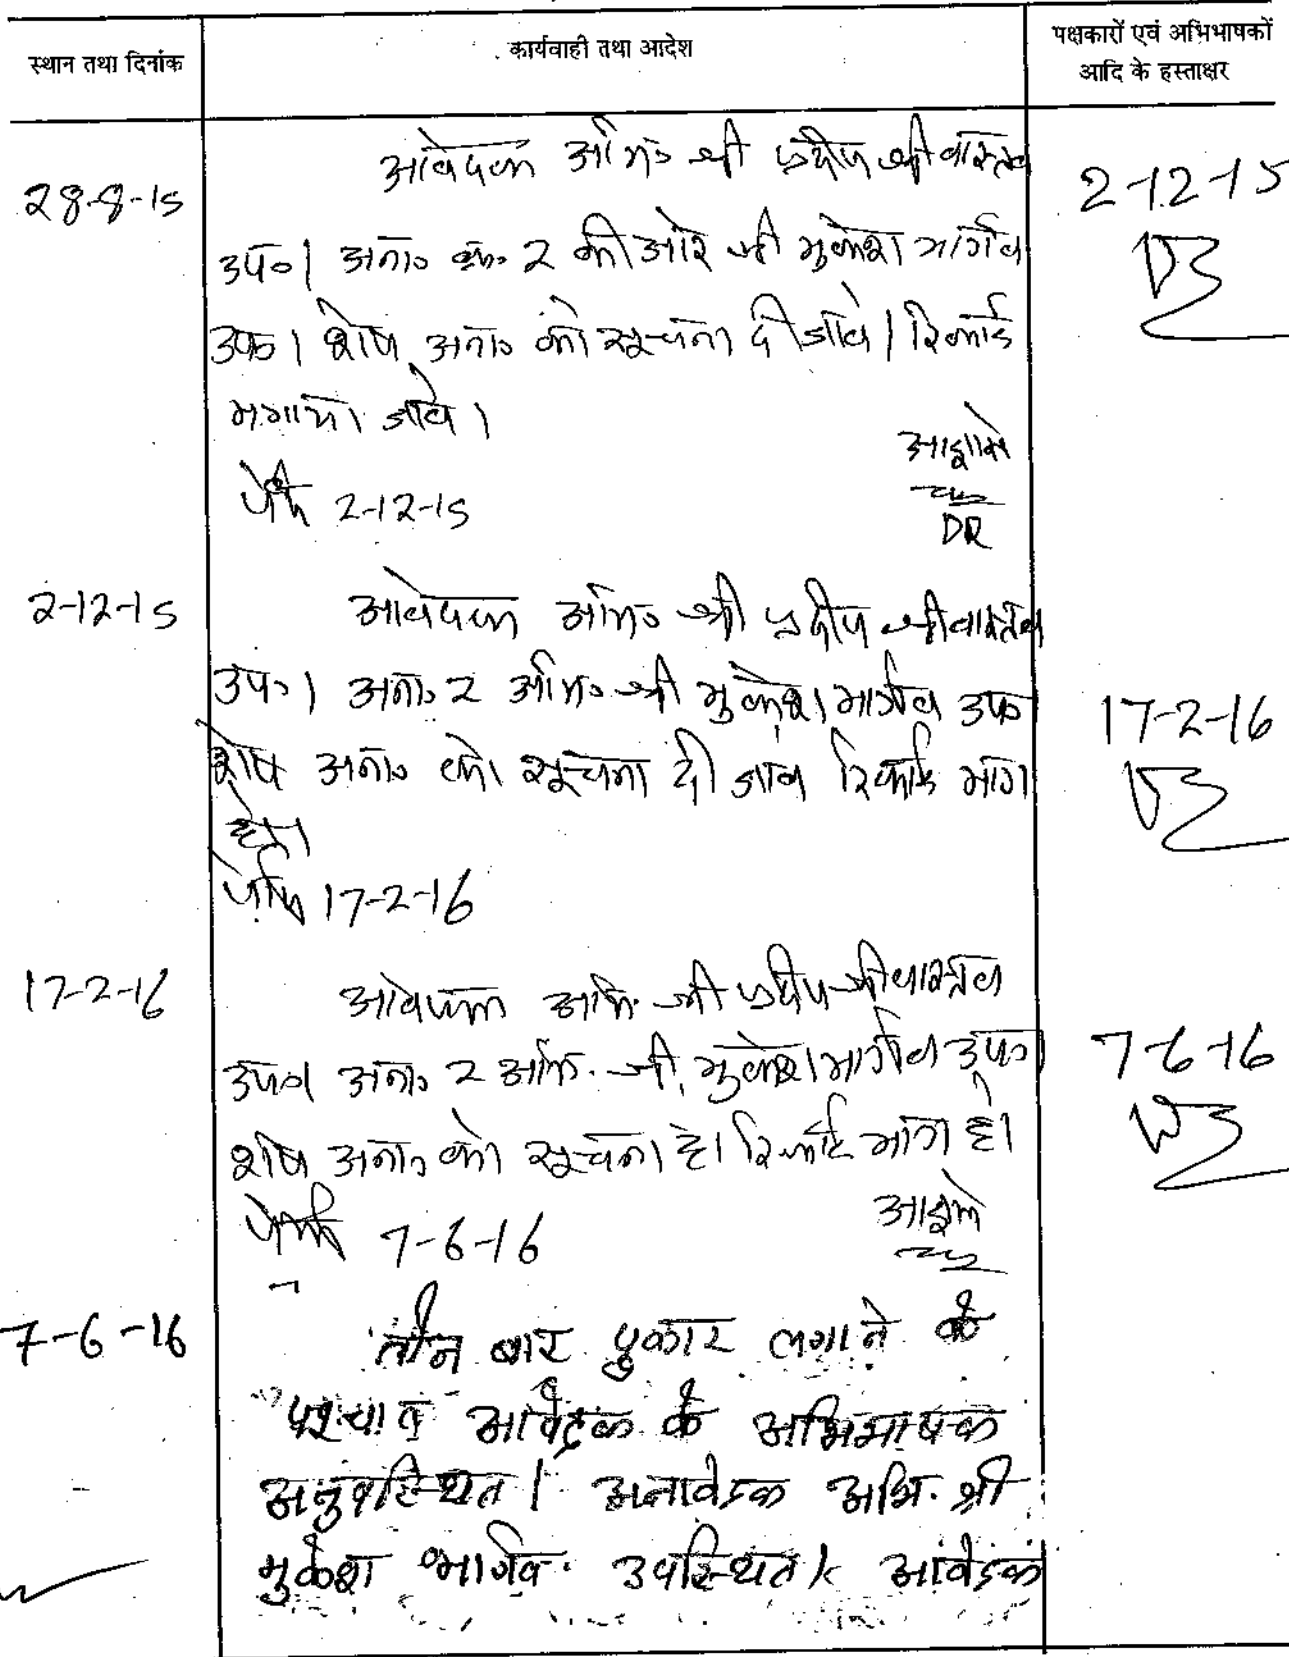 स्थान तथा दिनांक
कार्यवाही तथा आदेश
पक्षकारों एवं अभिभाषकों
आदि के हस्ताक्षर
28-8-15
आवेदक अभि० श्री प्रदीप श्रीवास्तव
उप०। अना० क्र. 2 की ओर श्री मुकेश भार्गव
उप०। शेष अना० को सूचना दी जावे। रिकार्ड
मगाया जावे।
पेशी 2-12-15
आज्ञा से
DR
2-12-15
2-12-15
आवेदक अभि० श्री प्रदीप श्रीवास्तव
उप०। अना० 2 अभि० श्री मुकेश भार्गव उप०
शेष अना० को सूचना दी जाव रिकार्ड मांग
पेशी 17-2-16
17-2-16
17-2-16
आवेदक अभि. श्री प्रदीप श्रीवास्तव
उप०। अना० 2 अभि. श्री मुकेश भार्गव उप०।
शेष अना० को सूचना हो। रिकार्ड मांग हो।
पेशी 7-6-16
आज्ञा से
7-6-16
7-6-16
तीन बार पुकार लगाने के
पश्चात आवेदक के अभिभाषक
अनुपस्थित। अनावेदक अभि. श्री
मुकेश भार्गव उपस्थित। आवेदक